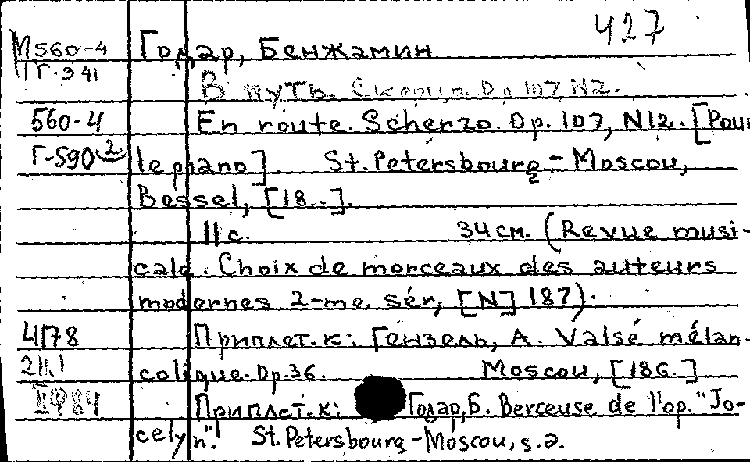 427
М560-4 Годар, Бенжамин
Г-941 В путь. Скерцо. Op. 107, N2.
560-4 En route. Scherzo. Op. 107, N12. [Pour
Г-590 2 le piano]. St. Petersbourg - Moscou,
Bessel, [18..].
11 с. 34 см. (Revue musi-
cale. Choix de morceaux des auteurs
modernes 2-me sér, [N] 187).
4178 Приплет. к: Гензель, А. Valse mélan-
colique. Op. 36. Moscou, [186.]
Приплет. к: Годар, Б. Berceuse de l'op. "Jo-
celyn". St. Petersbourg - Moscou, s.a.